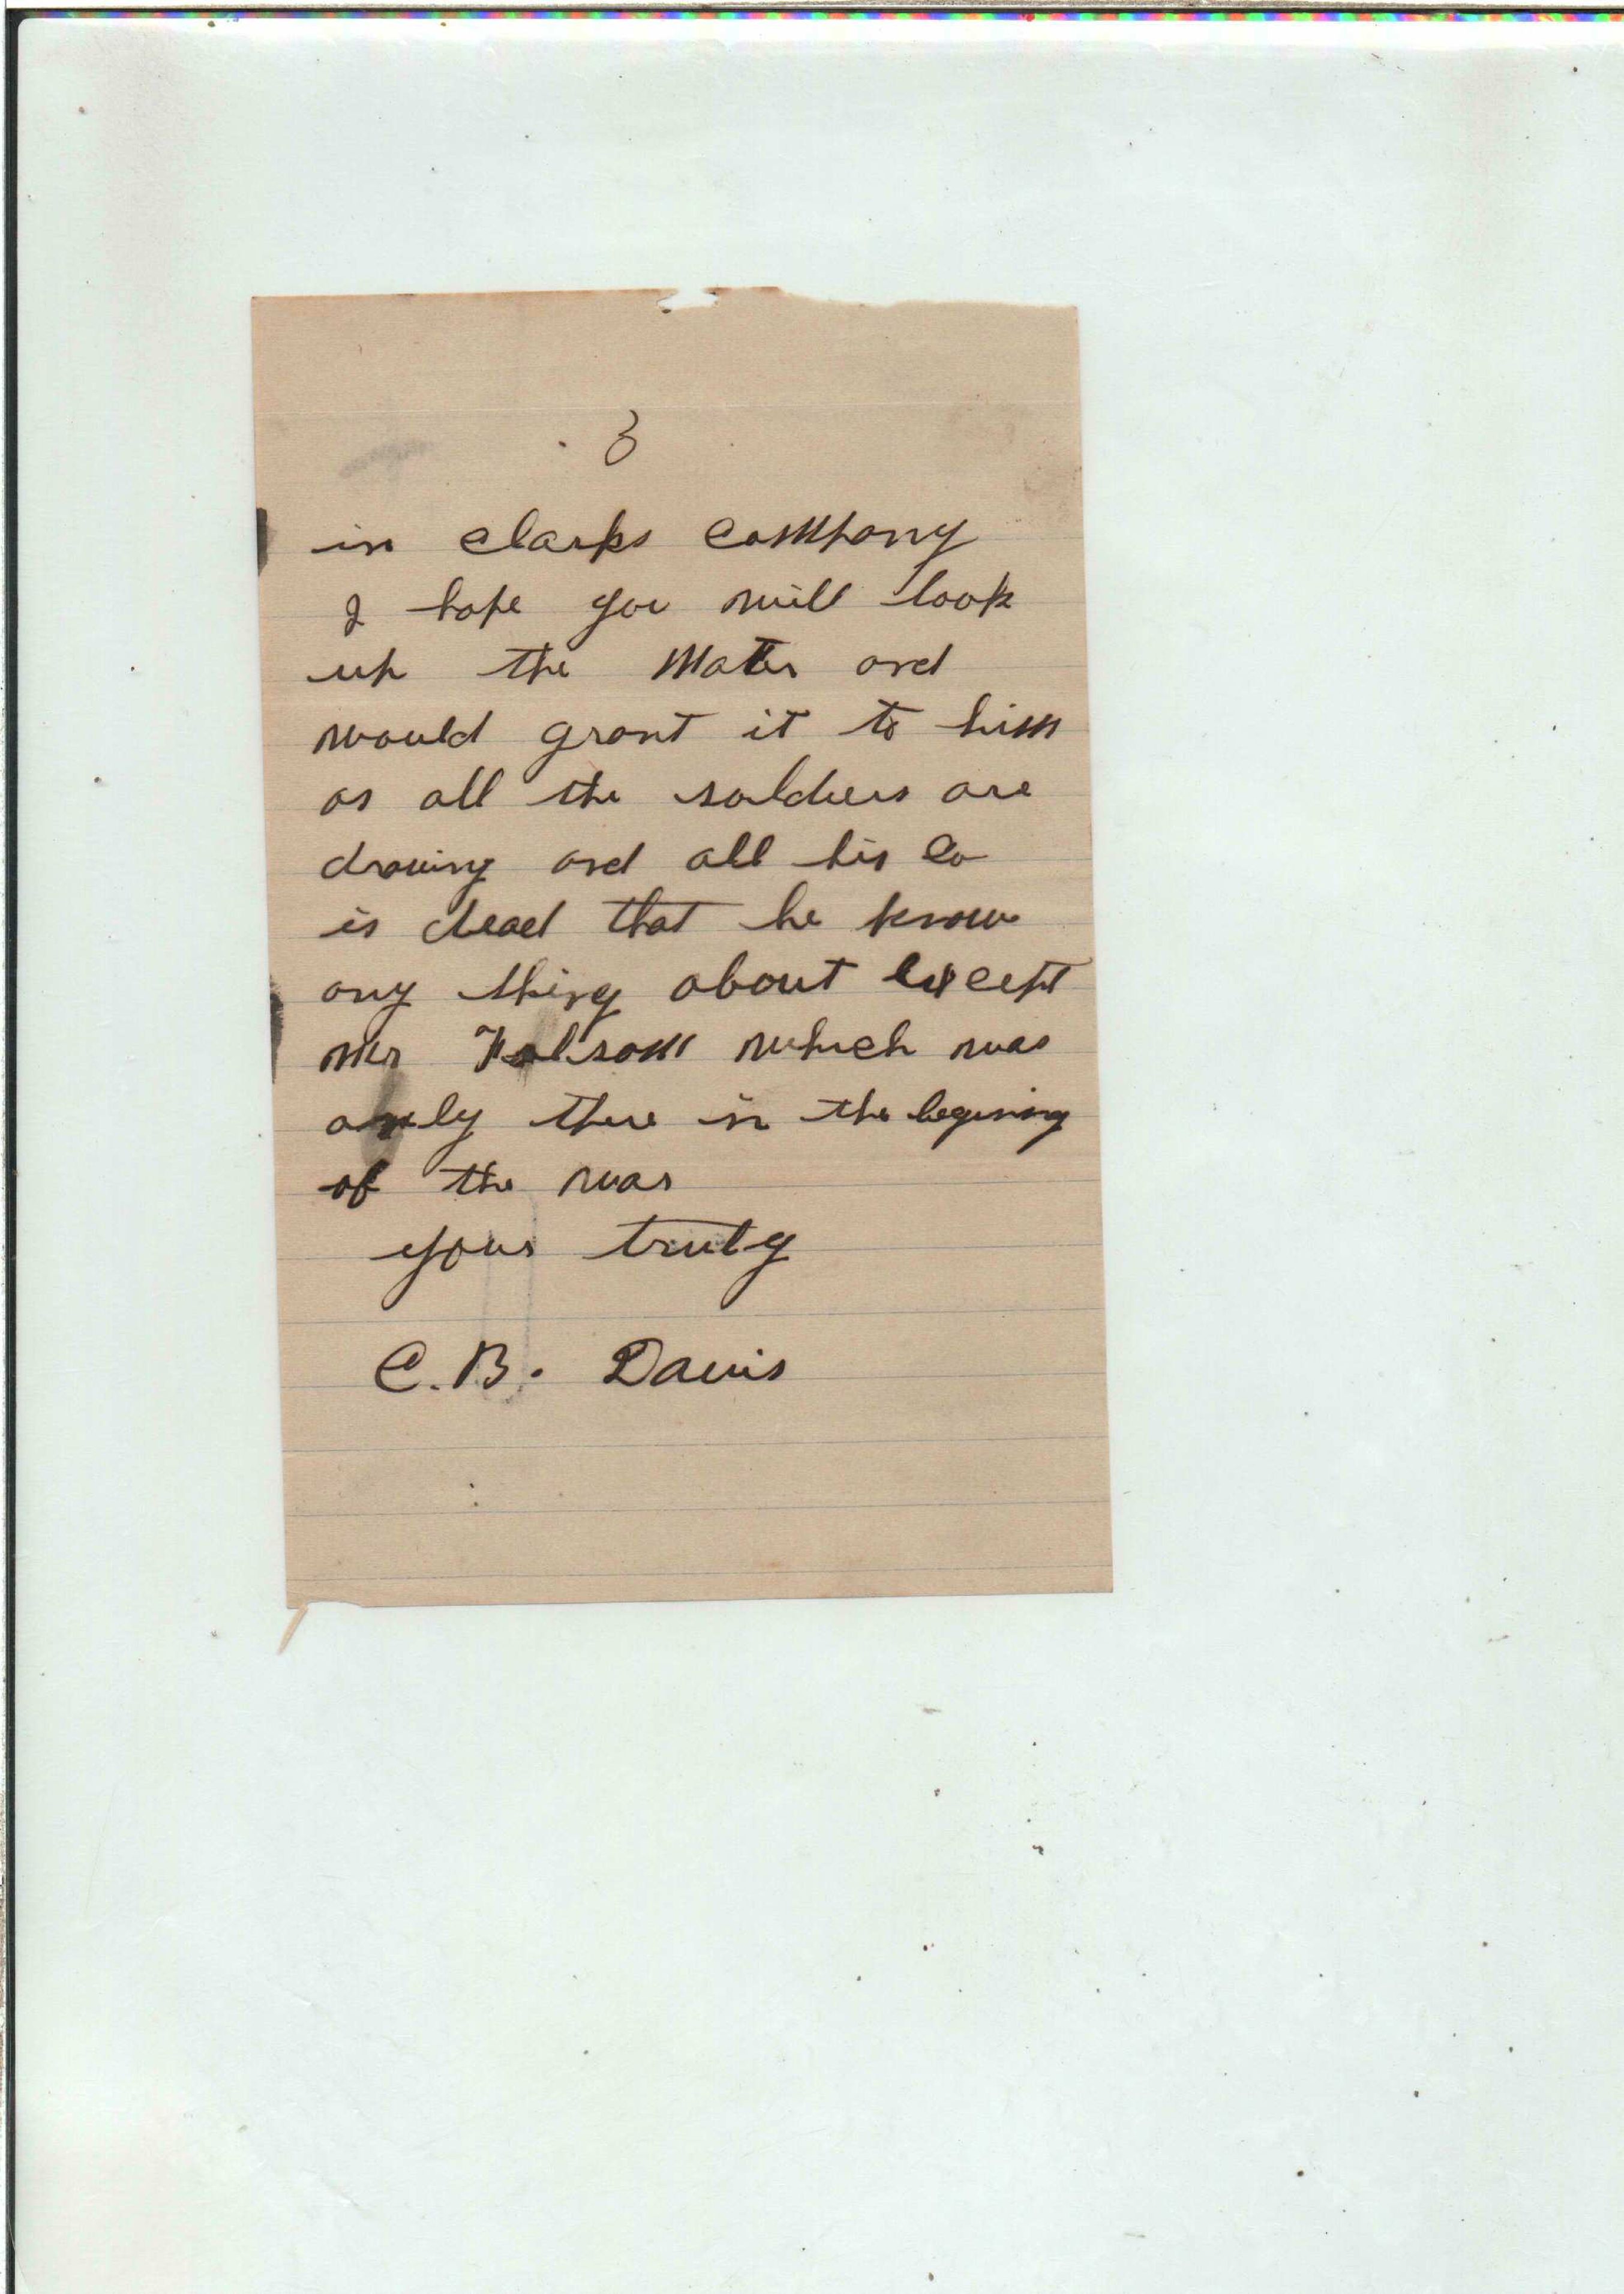 3
in Clarks Company
I hope you will look
up the Mater and
would grant it to him
as all the soldiers are
drawing and all his Co
is dead that he know
any thing about except
Mr Folsom which was
only there in the begining
of the war
your truly
C.B. Davis